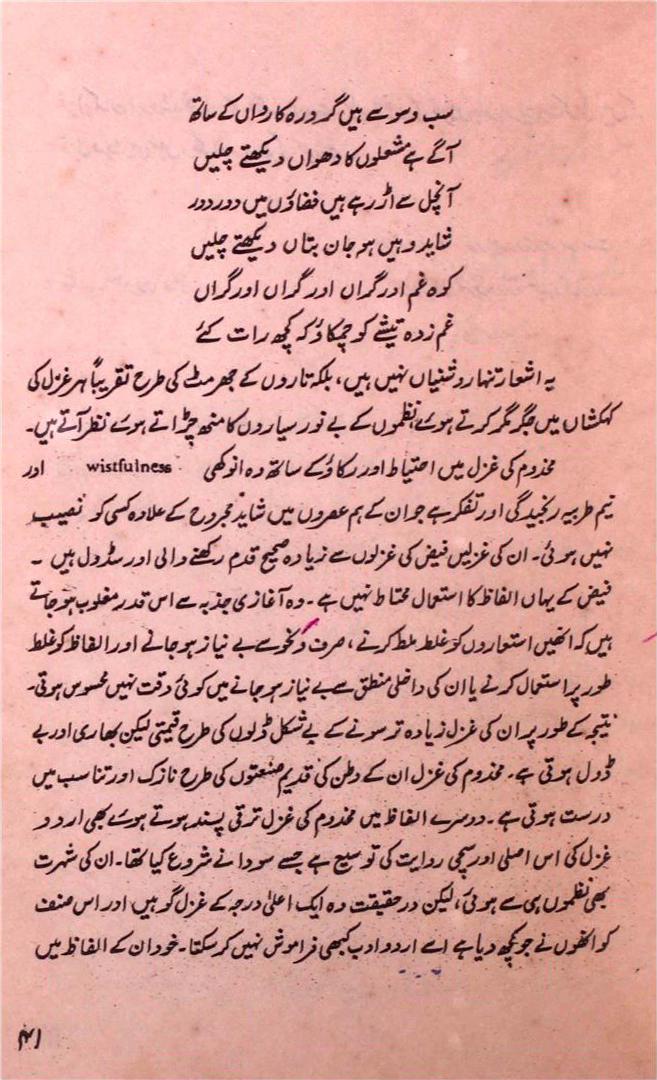 سب وسوسے ہیں گرد رہ کارواں کے ساتھ
آگے ہے مشعلوں کا دھواں دیکھتے چلیں
آنچل سے اڑ رہے ہیں فضاؤں میں دور دور
شاید وہیں ہو جان بتاں دیکھتے چلیں
کوہ غم اور گراں اور گراں اور گراں
غم زدہ تیشے کو چمکاؤ کہ کچھ رات کٹے
یہ اشعار تنہا روشنیاں نہیں ہیں، بلکہ تاروں کے جھرمٹ کی طرح تقریباً ہر غزل کی
کہکشاں میں جگر مگر کرتے ہوئے نظموں کے بے نور سیاروں کا منھ چڑاتے ہوئے نظر آتے ہیں۔
مخدوم کی غزل میں احتیاط اور رکاؤ کے ساتھ وہ انوکھی wistfulness اور
نیم طربیہ رنجیدگی اور تفکر ہے جو ان کے ہم عصروں میں شاید مجروح کے علاوہ کسی کو نصیب
نہیں ہوئی۔ ان کی غزلیں فیض کی غزلوں سے زیادہ صحیح قدم رکھنے والی اور سڈول ہیں ۔
فیض کے یہاں الفاظ کا استعمال محتاط نہیں ہے۔ وہ آغازی جذبہ سے اس قدر مغلوب ہو جاتے
ہیں کہ انھیں استعاروں کو غلط ملط کرنے، صرف و نحو سے بے نیاز ہو جانے اور الفاظ کو غلط
طور پر استعمال کرنے یا ان کی داخلی منطق سے بے نیاز ہو جانے میں کوئی دقت نہیں محسوس ہوتی۔
نتیجہ کے طور پر ان کی غزل زیادہ تر سونے کے بے شکل ڈلوں کی طرح قیمتی لیکن بھاری اور بے
ڈول ہوتی ہے۔ مخدوم کی غزل ان کے وطن کی قدیم صنعتوں کی طرح نازک اور تناسب میں
درست ہوتی ہے۔ دوسرے الفاظ میں مخدوم کی غزل ترقی پسند ہوتے ہوئے بھی اردو
غزل کی اس اصلی اور سچی روایت کی توسیع ہے جسے سودا نے شروع کیا تھا۔ ان کی شہرت
بھی نظموں ہی سے ہوئی، لیکن درحقیقت وہ ایک اعلیٰ درجہ کے غزل گو ہیں اور اس صنف
کو انھوں نے جو کچھ دیا ہے اسے اردو ادب کبھی فراموش نہیں کر سکتا۔ خود ان کے الفاظ میں
۴۱